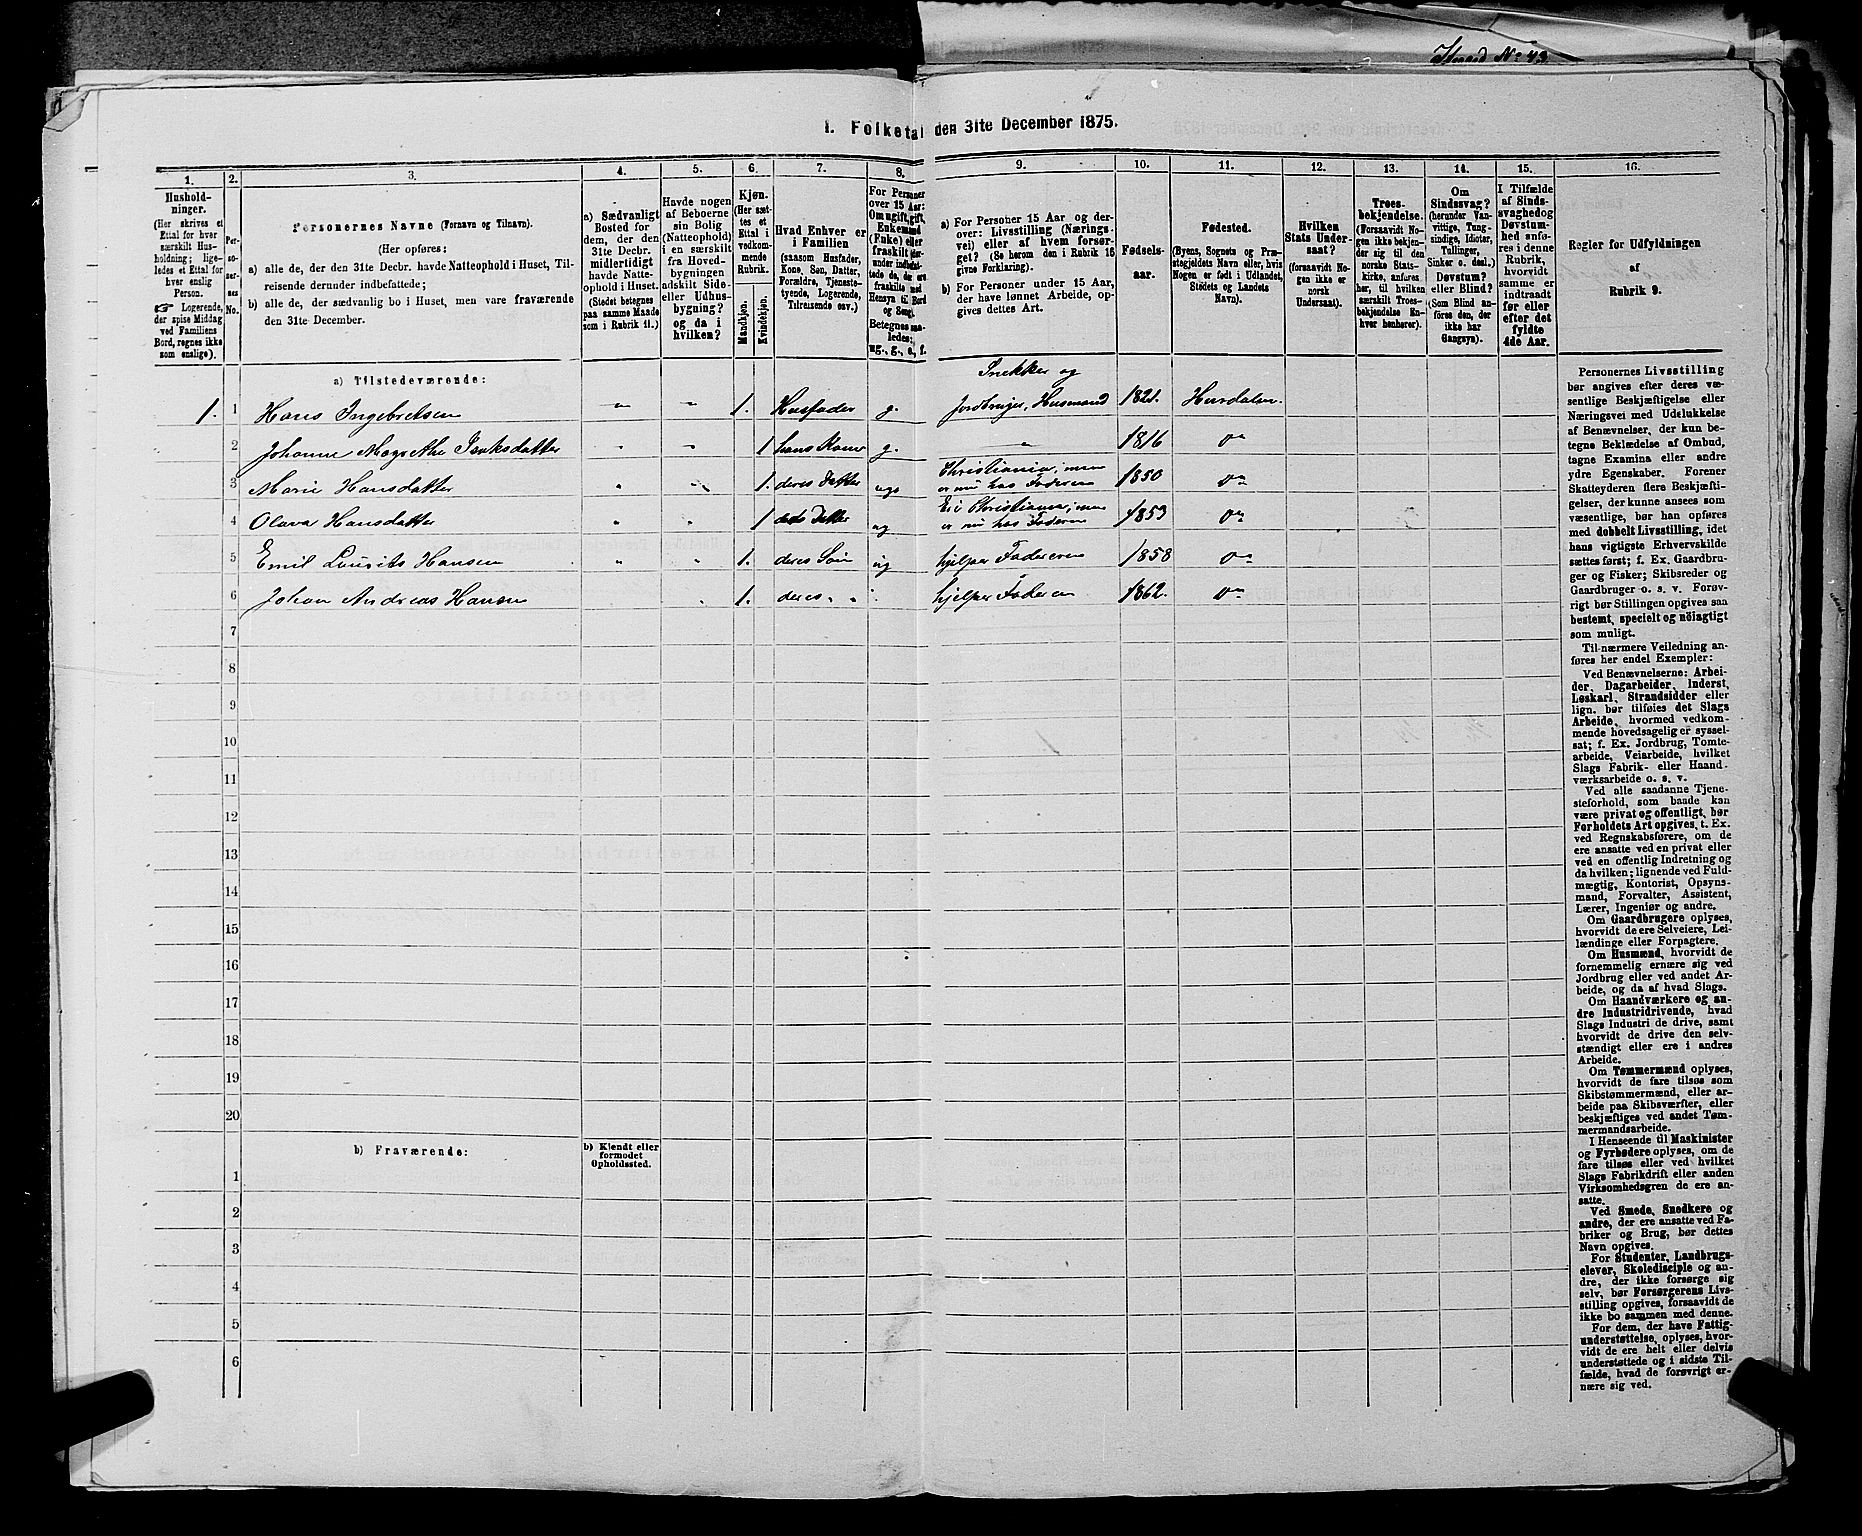 Kreds No 43
1. Folketal den 31te December 1875.
1.
Hushold-
ninger.
(Her skrives et
Ettal for hver
særskilt Hus-
holdning; lige-
ledes et Ettal for
hver enslig
Person.
☞ Logerende,
der spise Middag
ved Familiens
Bord, regnes ikke
som enslige).
2.
Per-
so-
ner-
nes
No.
3.
Personernes Navne (Fornavn og Tilnavn).
(Her opføres:
a) alle de, der den 31te Decbr. havde Natteophold i Huset, Til-
reisende derunder indbefattede;
b) alle de, der sædvanlig bo i Huset, men vare fraværende
den 31te December.
4.
a) Sædvanligt
Bosted for
dem, der den
31te Decbr.
midlertidigt
havde Natte-
ophold i Huset.
(Stedet betegnes
paa samme Maade
som i Rubrik 11.)
5.
Havde nogen
af Beboerne
sin Bolig
(Natteophold)
i en særskilt
fra Hoved-
bygningen
adskilt Side-
eller Udhus-
bygning?
og da i
hvilken?
6.
Kjøn.
(Her sæt-
tes et
Ettal i
vedkom-
mende
Rubrik.
Mandkjøn.
Kvindekjøn.
7.
Hvad Enhver er
i Familien
(saasom Husfader,
Kone, Søn, Datter,
Forældre, Tjeneste-
tyende, Logerende,
Tilreisende osv.)
8.
For Personer
over 15 Aar:
Om ugift, gift,
Enkemand
(Enke) eller
fraskilt
Betegnes saa-
ledes:
ug., g., e., f.
9.
a) For Personer 15 Aar og der-
over: Livsstilling (Nærings-
vei) eller af hvem forsør-
get? (Se herom den i Rubrik 16
givne Forklaring).
b) For Personer under 15 Aar,
der have lønnet Arbeide, op-
gives dettes Art.
10.
Fødsels-
aar.
11.
Fødested.
(Byens, Sognets og Præ-
stegjeldets Navn eller, hvis
Nogen er født i Udlandet,
Stedets og Landets
Navn).
12.
Hvilken
Stats Under-
saat?
(forsaavidt No-
gen ikke er
norsk
Undersaat).
13.
Troes-
bekjendelse.
(Forsaavidt No-
gen ikke bekjen-
der sig til den
norske Stats-
kirke, anføres
her, til hvilken
særskilt Troes-
bekjendelse En-
hver henhører).
14.
Om
Sindssvag?
(herunder Van-
vittige, Tung-
sindige, Idioter,
Tullinger,
Sinker o. desl.)
Døvstum?
eller Blind?
(Som Blind an-
føres den, der
ikke har
Gangsyn).
15.
I Tilfælde
af Sinds-
svaghed og
Døvstum-
hed anfø-
res i denne
Rubrik,
hvorvidt
samme er
indtraadt
før eller
efter det
fyldte
4de Aar.
16.
Regler for Udfyldningen
af
Rubrik 9.
a) Tilstedeværende:
Snekker og
1. 1 Hans Ingebretsen " " 1. Husfader g. Jordbruger, Husmand 1821. Hurdalen.
2 Johanne Magrethe " " 1 hans Kone g. " 1816 do
Christiania, men
3 Marie Hansdatter " " 1. deres Datter ug. er nu hos Faderen 1850 do
Er i Christiania, men
4 Olava Hansdatter " " 1 deres Datter ug er nu hos Faderen 1853 do
5 Emil Laurits Hansen " " 1. deres Søn ug hjelper Faderen 1858 do
6 Johan Andreas Hansen " 1. deres " hjelper Faderen 1862. do
7
8
9
10
11
12
13
14
15
16
17
18
19
20
b) Fraværende:
b) Kjendt eller
formodet
Opholdssted.
1
2
3
4
5
6
Personernes Livsstilling
bør angives efter deres væ-
sentlige Beskjæftigelse eller
Næringsvei med Udelukkelse
af Benævnelser, der kun be-
tegne Beklædelse af Ombud,
tagne Examina eller andre
ydre Egenskaber. Forener
Skatteyderen flere Beskjæfti-
gelser, der kunne ansees som
væsentlige, bør han opføres
med dobbelt Livsstilling, idet
hans vigtigste Erhvervskilde
sættes først; f. Ex. Gaardbru-
ger og Fisker; Skibsreder og
Gaardbruger o. s. v. Forøv-
rigt bør Stillingen opgives saa
bestemt, specielt og nöiagtigt
som muligt.
Til nærmere Veiledning an-
føres her endel Exempler:
Ved Benævnelserne: Arbei-
der, Dagarbeider, Inderst,
Løskarl, Strandsidder eller
lign. bør tilføies det Slags
Arbeide, hvormed vedkom-
mende hovedsagelig er syssel-
sat; f. Ex. Jordbrug, Tomte-
arbeide, Veiarbeide, hvilket
Slags Fabrik- eller Haand-
værksarbeide o. s. v.
Ved alle saadanne Tjene-
steforhold, som baade kan
være privat og offentligt, bør
Forholdets Art opgives, t. Ex.
ved Regnskabsførere, om de
ere ansatte ved en privat eller
ved en offentlig Indretning og
da hvilken; lignende ved Fuld-
mægtig, Kontorist, Opsyns-
mand, Forvalter, Assistent,
Lærer, Ingeniør og andre.
Om Gaardbrugere oplyses,
hvorvidt de ere Selveiere, Lei-
lændinge eller Forpagtere.
Om Husmænd, hvorvidt de
fornemmelig ernære sig ved
Jordbrug eller ved andet Ar-
beide, og da af hvad Slags.
Om Haandværkere og an-
dre Industridrivende, hvad
Slags Industri de drive, samt
hvorvidt de drive den selv-
stændigt eller ere i andres
Arbeide.
Om Tømmermænd oplyses,
hvorvidt de fare tilsøs som
Skibstømmermænd, eller ar-
beide paa Skibsværfter, eller
beskjæftiges ved andet Tøm-
mermandsarbeide.
I Henseende til Maskinister
og Fyrbødere oplyses, om de
fare tilsøs eller ved hvilket
Slags Fabrikdrift eller anden
Virksomhedsgren de ere an-
satte.
Ved Smede, Snedkere og
andre, der ere ansatte ved Fa-
briker og Brug, bør dettes
Navn opgives.
For Studenter, Landbrugs-
elever, Skoledisciple og an-
dre, der ikke forsørge sig
selv, bør Forsørgerens Livs-
stilling opgives, forsaavidt de
ikke bo sammen med denne.
For dem, der have Fattig-
understøttelse, oplyses, hvor-
vidt de ere helt eller delvis
understøttede og i sidste Til-
fælde, hvad de forøvrigt er-
nære sig ved.